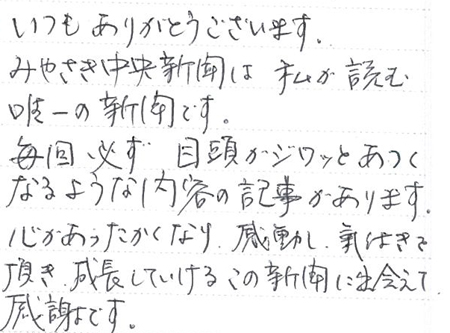 いつもありがとうございます。
みやざき中央新聞は 私が読む
唯一の新聞です。
毎回必ず 目頭がジワッとあつく
なるような内容の記事があります。
心があったかくなり、感動し、氣付きを
頂き、成長していけるこの新聞に出会えて
感謝です。